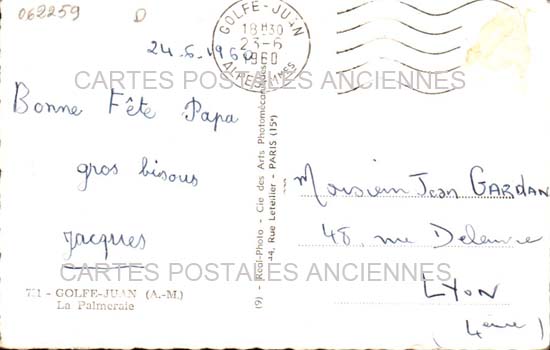 062259
D
GOLFE-JUAN
18H30
23-6
1960
ALPES-Mmes
24.6.1960
CARTES POSTALES ANCIENNES
Bonne Fête Papa
gros bisous
Jacques
CARTES POSTALES ANCIENNES
GOLFE-JUAN (A.-M.)
La Palmeraie
(9) - Réal-Photo - Cie des Arts Photomécaniques
44, Rue Letellier - PARIS (15e)
Monsieur Jean
48, rue
LYON
(4ème)